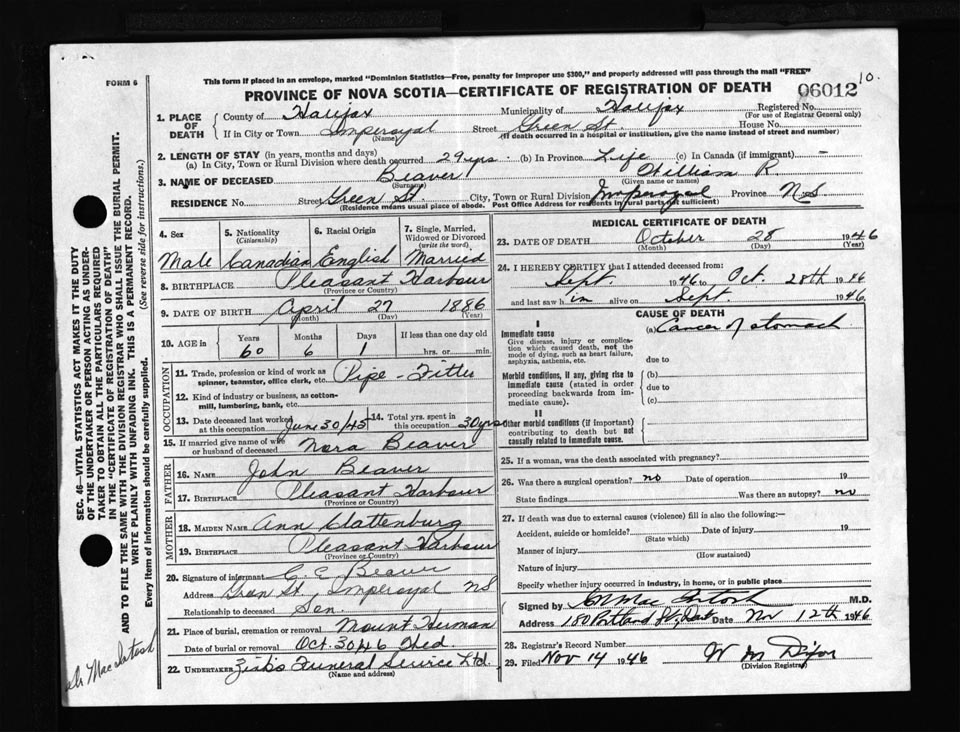 FORM 6
This form if placed in an envelope, marked "Dominion Statistics—Free, penalty for improper use $300," and properly addressed will pass through the mail "FREE"
10.
PROVINCE OF NOVA SCOTIA—CERTIFICATE OF REGISTRATION OF DEATH 06012
1. PLACE OF DEATH
County of Halifax Municipality of Halifax Registered No.
(For use of Registrar General only)
If in City or Town Imperoyal Street Green St. House No.
(Name) (If death occurred in a hospital or institution, give the name instead of street and number)
2. LENGTH OF STAY (in years, months and days)
(a) In City, Town or Rural Division where death occurred 29 yrs. (b) In Province Life (c) In Canada (if immigrant) —
3. NAME OF DECEASED Beaver William R.
(Surname) (Given name or names)
RESIDENCE No. Street Green St. City, Town or Rural Division Imperoyal Province N.S
(Residence means usual place of abode. Post Office Address for residents in rural parts not sufficient)
4. Sex Male
5. Nationality (Citizenship) Canadian
6. Racial Origin English
7. Single, Married, Widowed or Divorced (write the word) Married
8. BIRTHPLACE Pleasant Harbour
(Province or Country)
9. DATE OF BIRTH April 27 1886
(Month) (Day) (Year)
10. AGE in Years Months Days If less than one day old
60 6 1 hrs. or min.
OCCUPATION
11. Trade, profession or kind of work as spinner, teamster, office clerk, etc. Pipe-Fitter
12. Kind of industry or business, as cotton-mill, lumbering, bank, etc.
13. Date deceased last worked at this occupation June 30/45
14. Total yrs. spent in this occupation 30 yrs
15. If married give name of wife or husband of deceased Nora Beaver
FATHER
16. NAME John Beaver
17. BIRTHPLACE Pleasant Harbour
(Province or Country)
MOTHER
18. MAIDEN NAME Ann Clattenburg
19. BIRTHPLACE Pleasant Harbour
(Province or Country)
20. Signature of informant C. E. Beaver
Address Green St, Imperoyal NS
Relationship to deceased Son.
21. Place of burial, cremation or removal Mount Herman
Date of burial or removal Oct. 30 46 Wed.
22. UNDERTAKER Zink's Funeral Service Ltd.
(Name and address)
MEDICAL CERTIFICATE OF DEATH
23. DATE OF DEATH October 28 1946
(Month) (Day) (Year)
24. I HEREBY CERTIFY that I attended deceased from:
Sept. 1946 to Oct. 28th 1946
and last saw h im alive on Sept. 1946.
CAUSE OF DEATH
I
Immediate cause
Give disease, injury or complication which caused death, not the mode of dying, such as heart failure, asphyxia, asthenia, etc.
(a) Cancer of stomach
due to
Morbid conditions, if any, giving rise to immediate cause (stated in order proceeding backwards from immediate cause).
(b)
due to
(c)
II
Other morbid conditions (if important) contributing to death but not causally related to immediate cause.
25. If a woman, was the death associated with pregnancy?
26. Was there a surgical operation? no Date of operation 19
State findings Was there an autopsy? no
27. If death was due to external causes (violence) fill in also the following:—
Accident, suicide or homicide? Date of injury 19
(State which)
Manner of injury
(How sustained)
Nature of injury
Specify whether injury occurred in industry, in home, or in public place
Signed by MacIntosh M.D.
Address 180 Portland St., Dart Date Nov 12th 1946
28. Registrar's Record Number
29. Filed Nov 14 1946 W M Dixon
(Division Registrar)
SEC. 46—VITAL STATISTICS ACT MAKES IT THE DUTY
OF THE UNDERTAKER OR PERSON ACTING AS UNDER-
TAKER TO OBTAIN ALL THE PARTICULARS REQUIRED
IN THE "CERTIFICATE OF REGISTRATION OF DEATH"
AND TO FILE THE SAME WITH THE DIVISION REGISTRAR WHO SHALL ISSUE THE BURIAL PERMIT.
WRITE PLAINLY WITH UNFADING INK. THIS IS A PERMANENT RECORD.
Every item of information should be carefully supplied. (See reverse side for instructions.)
Dr MacIntosh